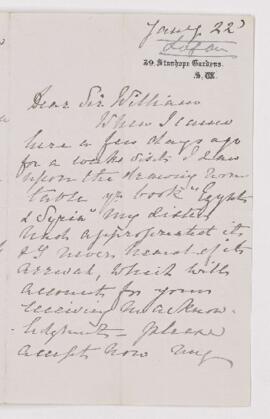 Jany 22
29, Stanhope Gardens,
S.W.
Dear Sir William
When I came
here a few days ago
for a weeks visit I saw
upon the drawing room
table yr book "Egypt
& Syria" my sister
had appropriated it
& I never heard of its
arrival, which will
account for your
receiving no acknow-
ledgment. Please
accept now my